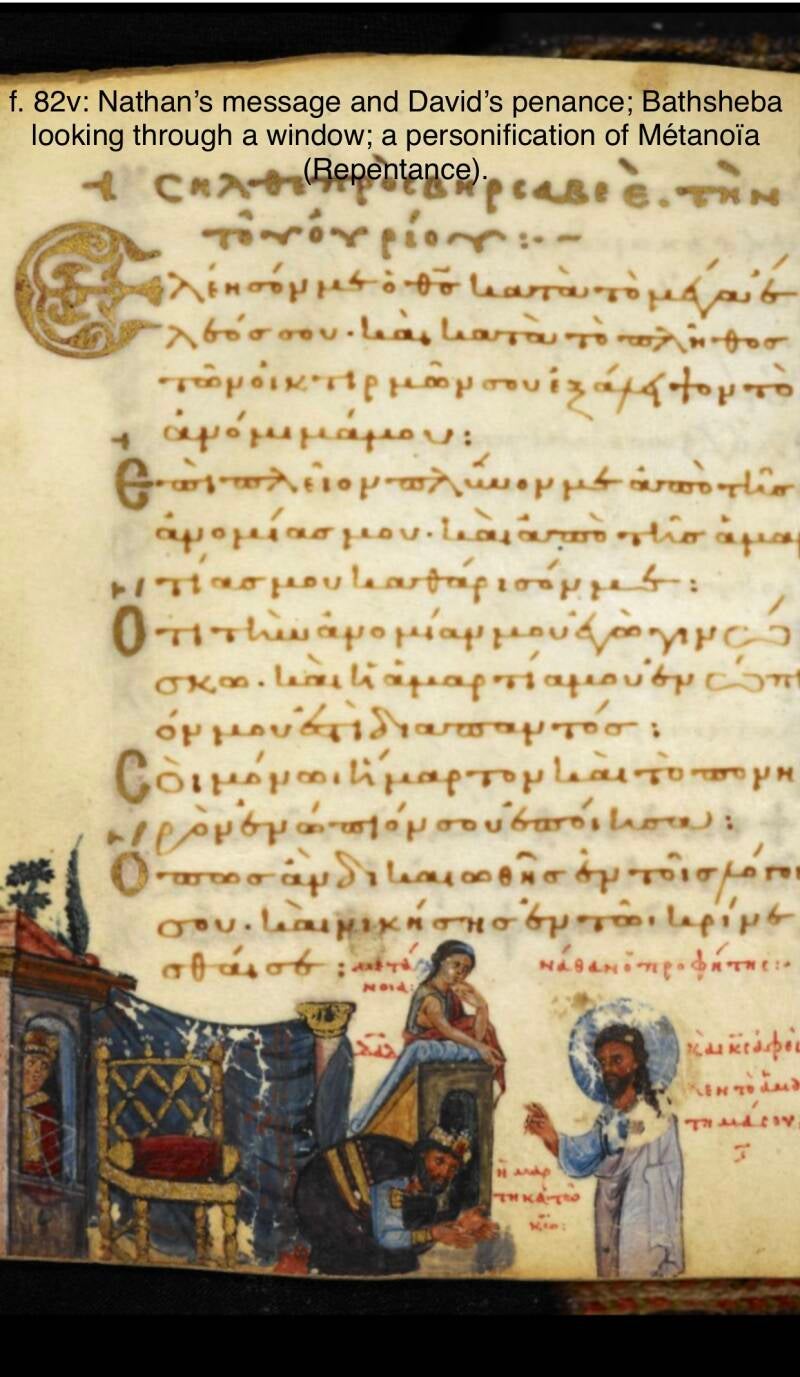 f. 82v: Nathan’s message and David’s penance; Bathsheba
looking through a window; a personification of Métanoïa
(Repentance).
εισῆλθε πρὸς βηρσαβεὲ. τὴν
τοῦ οὐρίου :·–
Ἐλέησόν με ὁ θ̅ς̅ κατὰ τὸ μέγα ἔ
λεός σου· καὶ κατὰ τὸ πλῆθος
τῶν οἰκτιρμῶν σου ἐξάλειψον τὸ
ἀνόμημά μου :
Ἐπὶ πλεῖον πλῦνον με ἀπὸ τῆς
ἀνομίας μου· καὶ ἀπὸ τῆς ἁμαρ
τίας μου καθάρισόν με :
Ὅτι τὴν ἀνομίαν μου ἐγὼ γινώ
σκω· καὶ ἡ ἁμαρτία μου ἐνώπι
όν μου ἐστὶ διαπαντός :
Σοὶ μόνω ἥμαρτον καὶ τὸ πονη
ρὸν ἐνώπιόν σου ἐποίησα :
Ὅπως ἂν δικαιωθῆς ἐν τοῖς λόγοις
σου· καὶ νικήσης ἐν τῶ κρίνε
σθαί σε :
μετά
νοια:
νάθαν ὁ προφήτης :·
δαδ
καὶ κ̅ς̅ ἀφεῖ
λεν τὸ ἁμάρ
τημά σου
ἡμάρ
τηκα τῶ
κ̅ω̅: